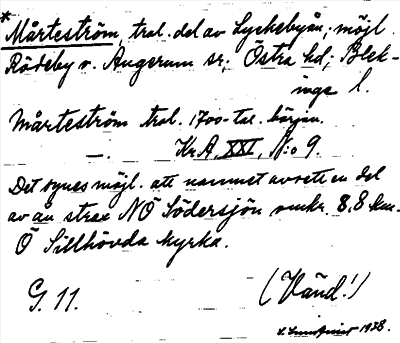 * Mårteström, trol. del av Lyckebyån; möjl.
Rödeby o. Augerum sr; Östra hd; Blek-
inge l.
Mårteström trol. 1700-tal. början.
—. Kr.A. XXI, N:o 9.
Det synes möjl. att namnet avsett en del
av ån strax NÖ Södersjön omkr. 8,8 km.
Ö Sillhövda kyrka.
G. 11. (Vänd!)
1928.